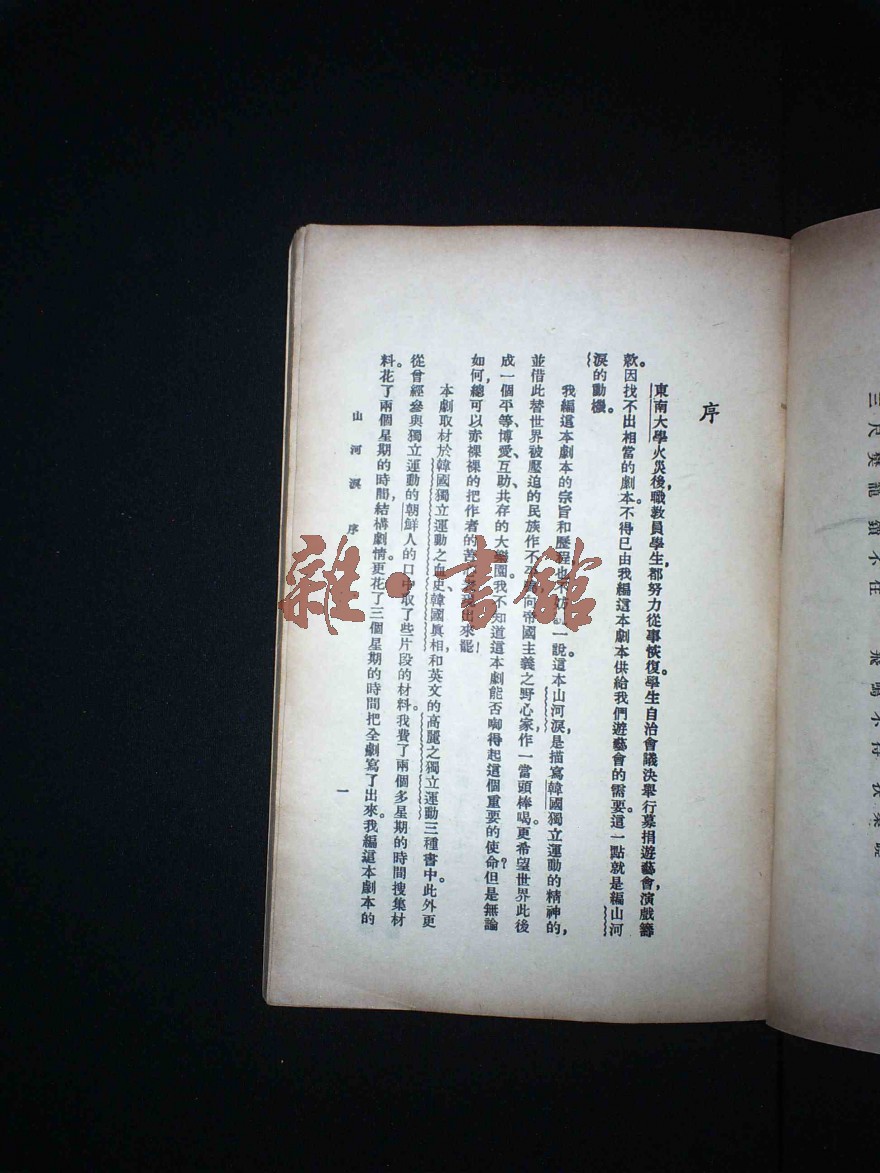 三尺樊籠鎖不住　飛鳴不待扶桑曉
序
東南大學火災後，職教員學生都努力從事恢復。學生自治會議決舉行募捐遊藝會，演戲籌
款。因找不出相當的劇本，不得已由我編這本劇本供給我們遊藝會的需要。這一點就是編山河
淚的動機。
我編這本劇本的宗旨和歷程也不妨 一說。這本山河淚，是描寫韓國獨立運動的精神的，
並借此替世界被壓迫的民族作不平鳴，向帝國主義之野心家作一當頭棒喝。更希望世界此後
成一個平等、博愛、互助、共存的大樂園。我不知道這本劇能否啣得起這個重要的使命？但是無論
如何，總可以赤裸裸的把作者的善 表現出來罷！
本劇取材於韓國獨立運動之血史、韓國眞相，和英文的高麗之獨立運動三種書中。此外更
從曾經參與獨立運動的朝鮮人的口中取了些片段的材料。我費了兩個多星期的時間搜集材
料。花了兩個星期的時間，結構劇情，更花了三個星期的時間把全劇寫了出來。我編這本劇本的
山河淚　序
一
雜·書館